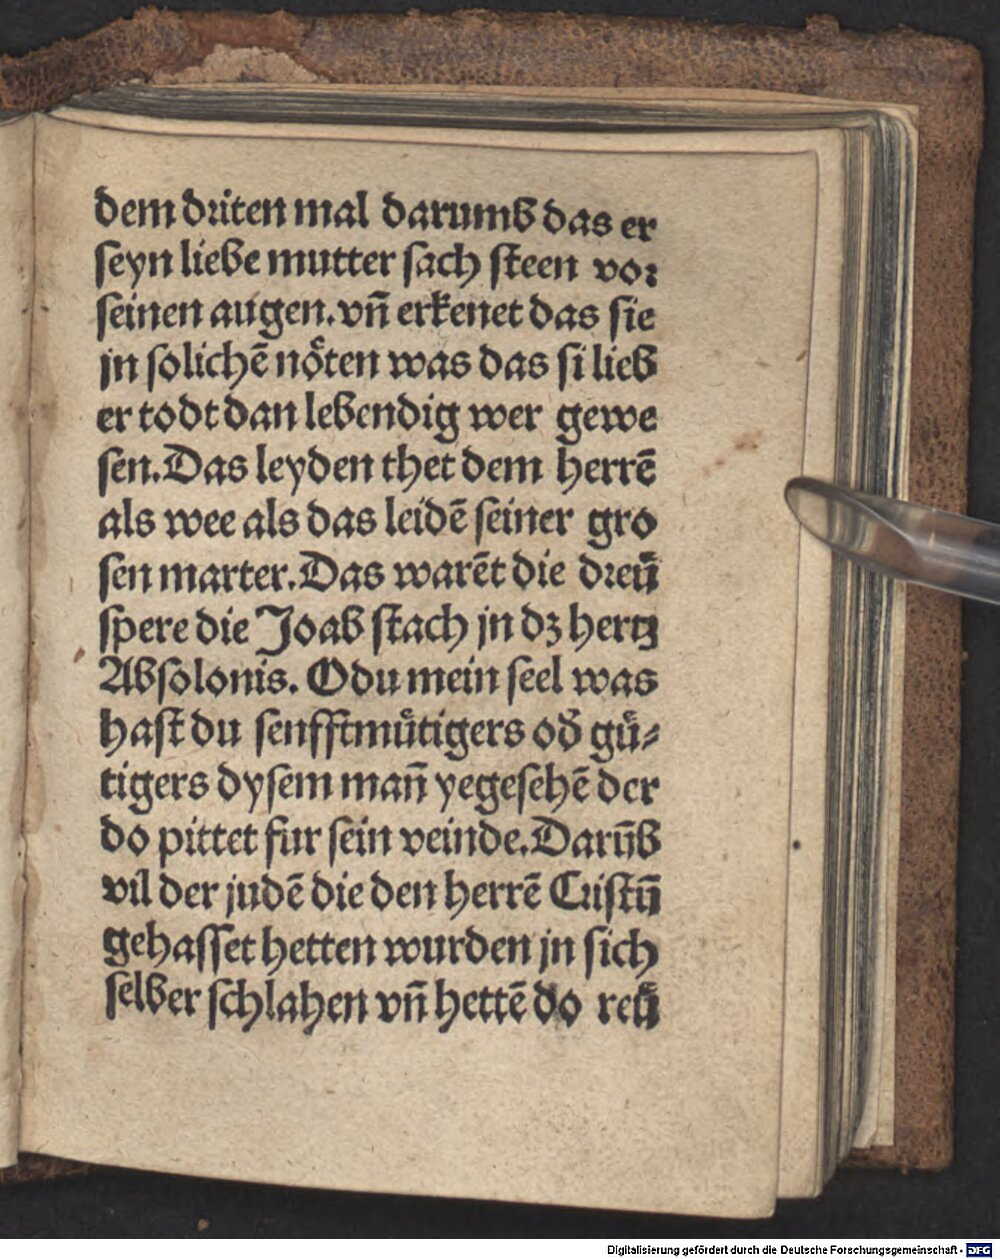 dem driten mal darumb das er
seyn liebe mutter sach steen vor
seinen augen. vñ erkenet das sie
jn solichē nöten was das si lieb
er todt dan lebendig wer gewe
sen. Das leyden thet dem herrē
als wee als das leidē seiner gro
sen marter. Das warēt die dreü
spere die Joab stach jn dz hertz
Absolonis. O du mein seel was
hast du senfftmütigers od̄ gü⸗
tigers dysem man̄ yegesehē der
do pittet fur sein veinde. Darūb
vil der judē die den herrē Cristū
gehasset hetten wurden jn sich
selber schlahen vñ hettē do reü
Digitalisierung gefördert durch die Deutsche Forschungsgemeinschaft - DFG